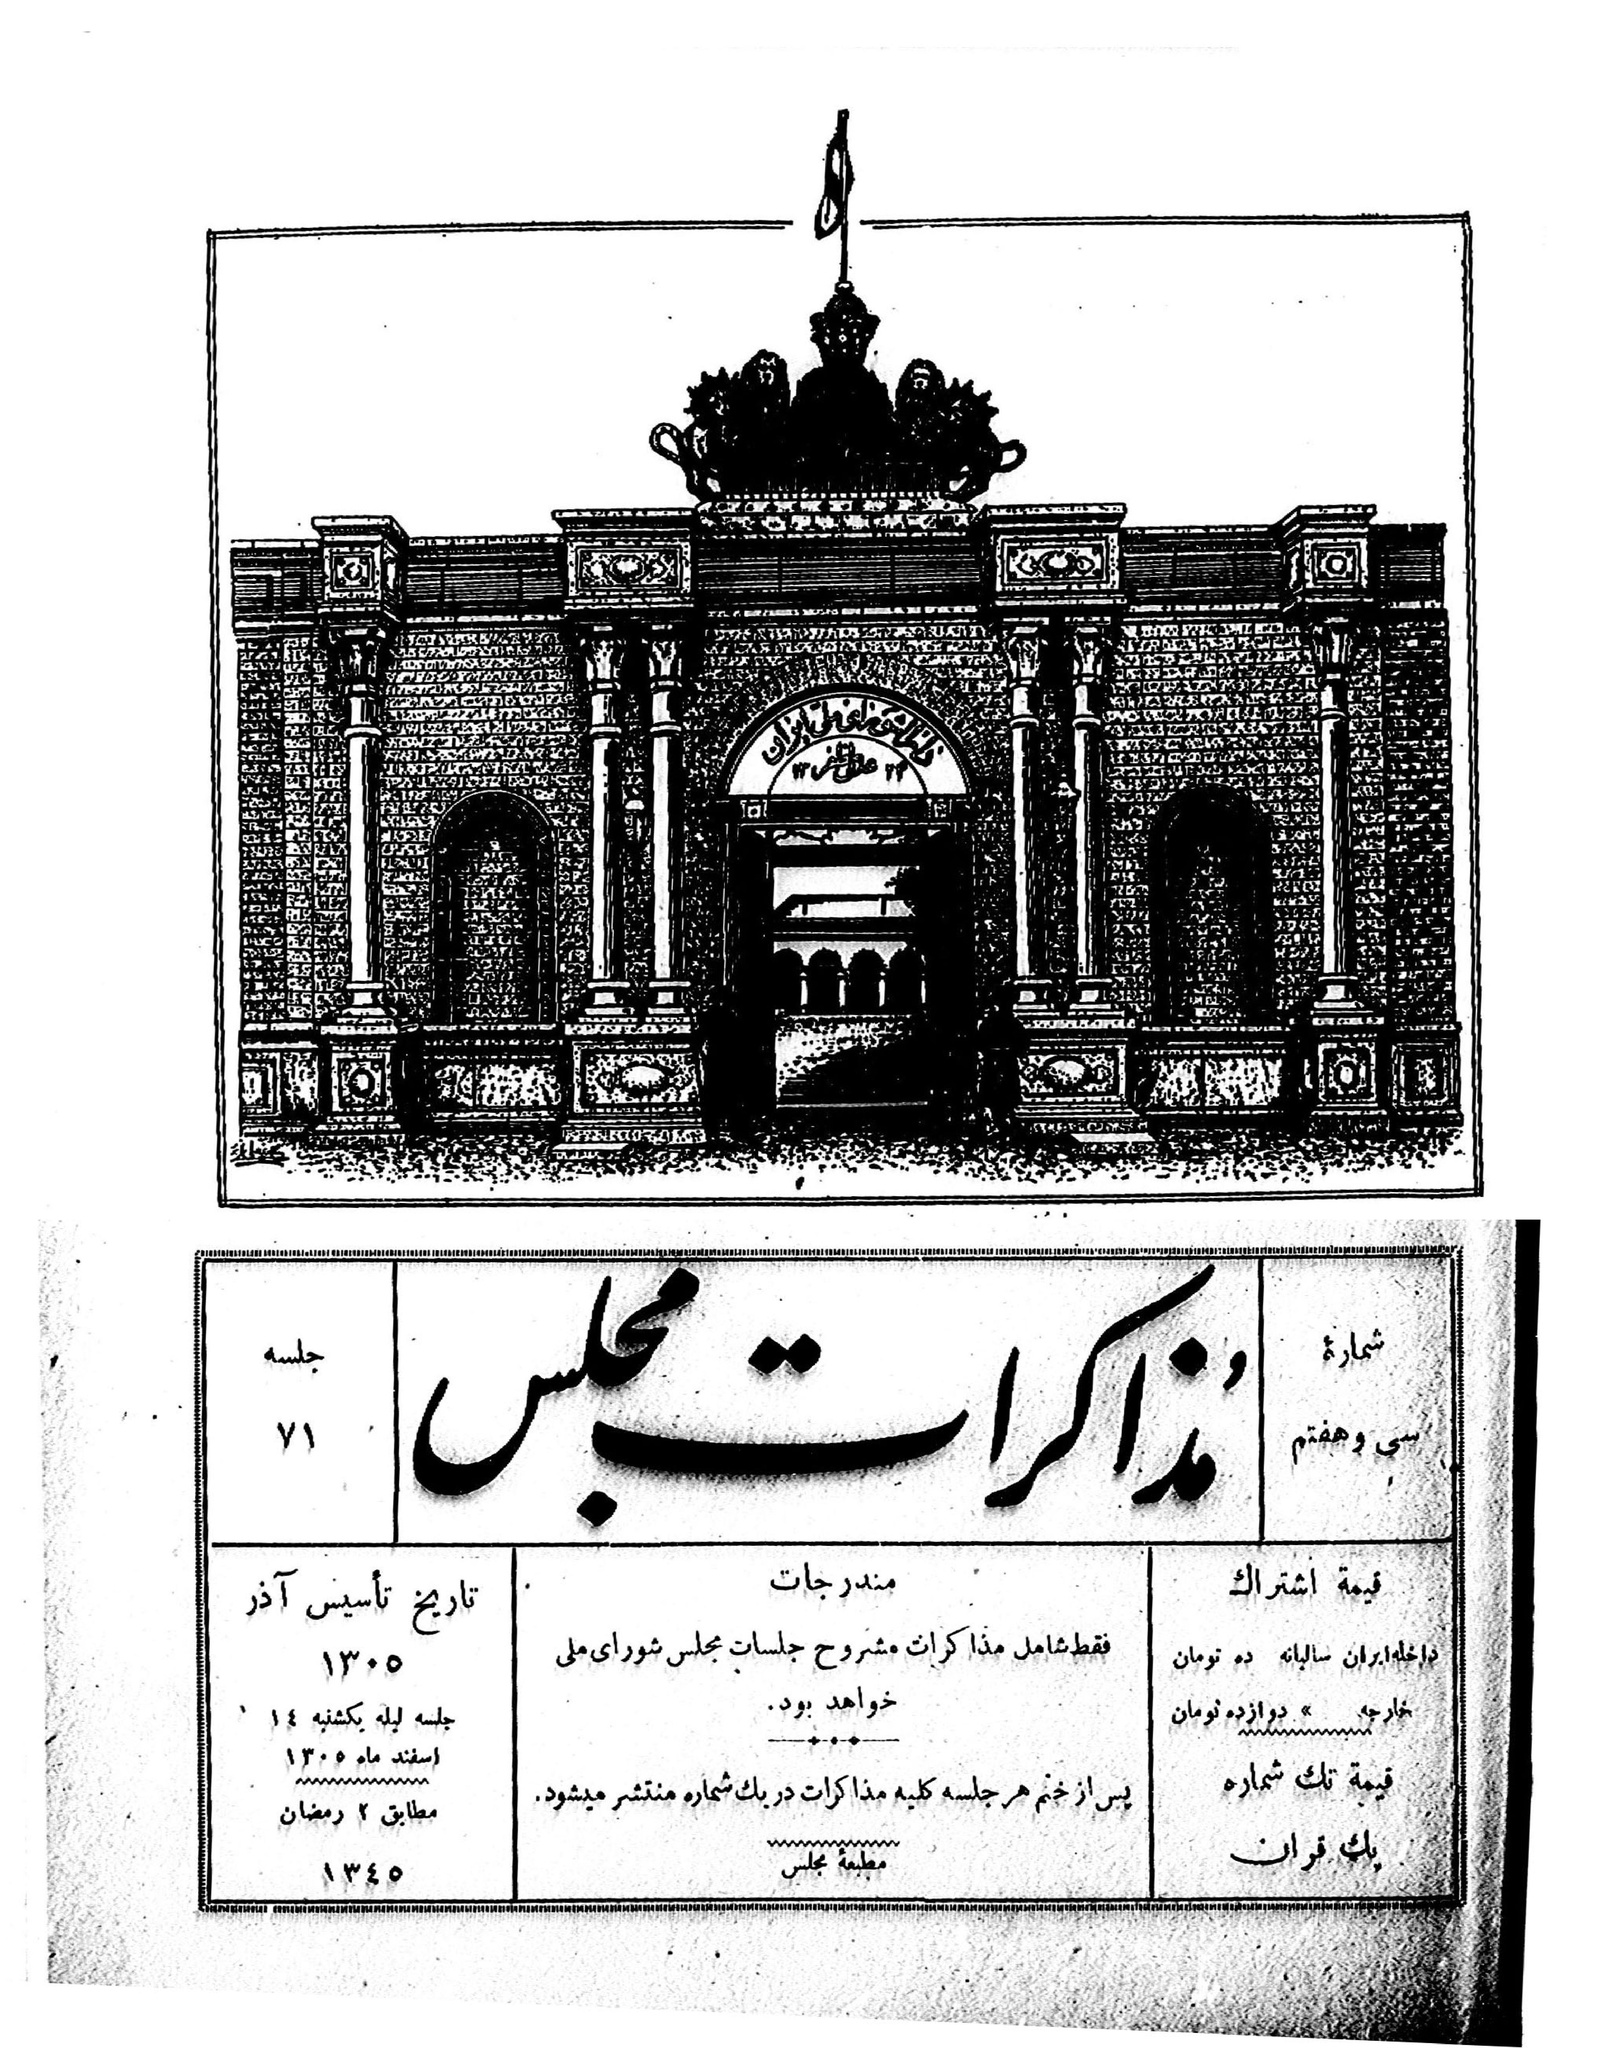 دارالشورای ملی ایران
عدل مظفر
مذاکرات مجلس
شمارهٔ
سی و هفتم
جلسه
۷۱
قیمة اشتراك
داخله ایران سالیانه ده تومان
خارجه » دوازده تومان
قیمة تك شماره
یك قران
مندرجات
فقط شامل مذاکرات مشروح جلسات مجلس شورای ملی
خواهد بود.
پس از ختم هر جلسه کلیه مذاکرات در یك شماره منتشر میشود.
مطبعهٔ مجلس
تاریخ تأسیس آذر
۱۳۰۵
جلسه لیله یکشنبه ۱٤
اسفند ماه ۱۳۰۵
مطابق ۲ رمضان
۱۳٤۵